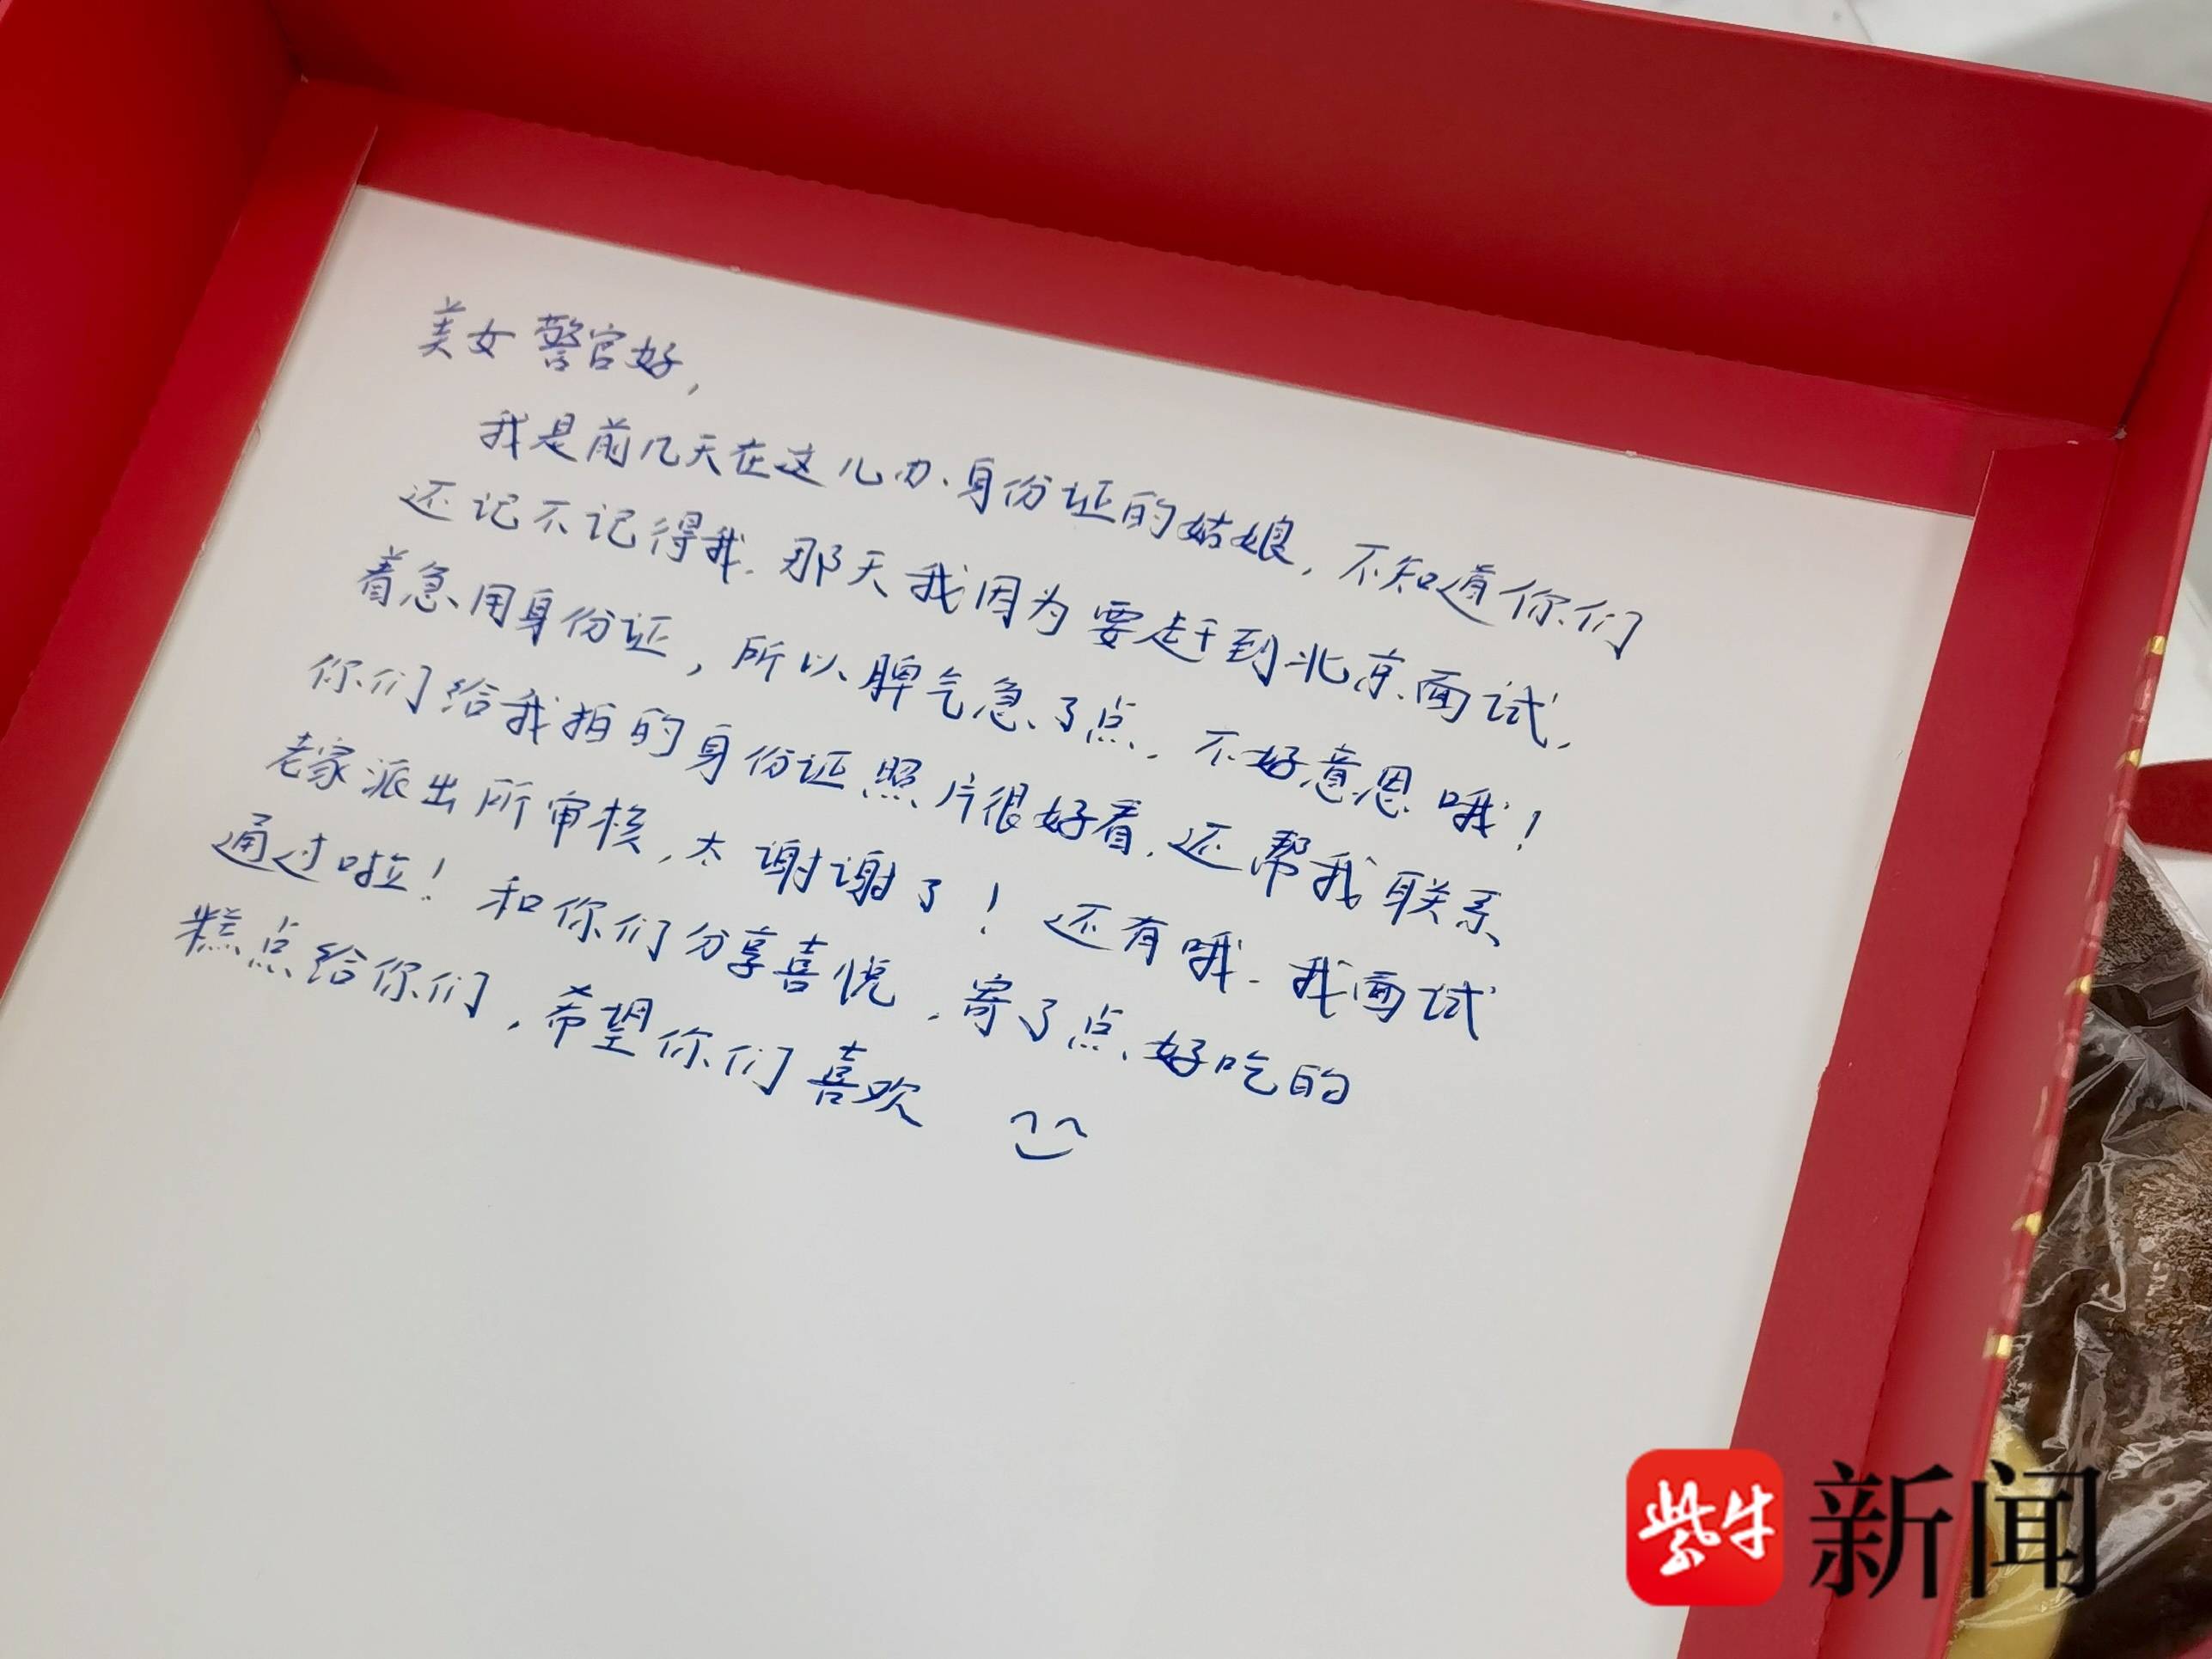 美女警官好，
我是前几天在这儿办身份证的姑娘，不知道你们
还记不记得我．那天我因为要赶到北京面试，
着急用身份证，所以脾气急了点，不好意思哦！
你们给我拍的身份证照片很好看，还帮我联系
老家派出所审核，太谢谢了！还有哦，我面试
通过啦！和你们分享喜悦，寄了点好吃的
糕点给你们，希望你们喜欢
紫牛 新闻